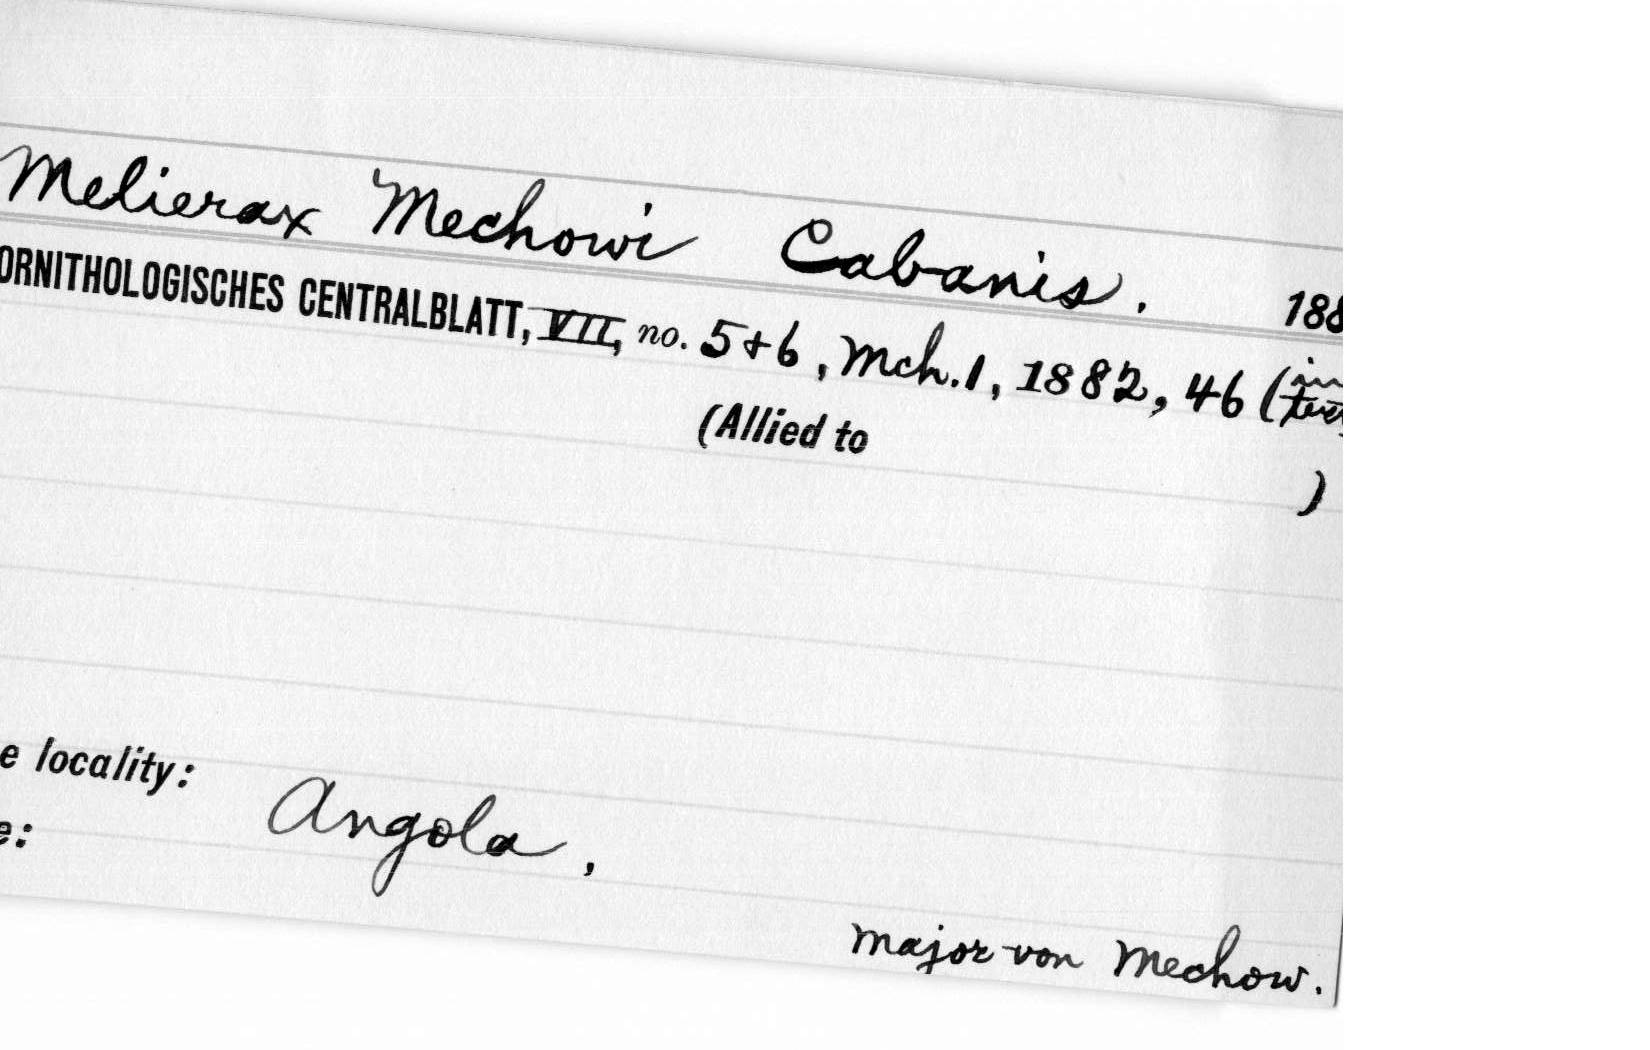 Melierax Mechowi Cabanis. 188
ORNITHOLOGISCHES CENTRALBLATT, VII, no. 5+6, Mch. 1, 1882, 46 (in
(Allied to
)
e locality: Angola,
e:
Major von Mechow.